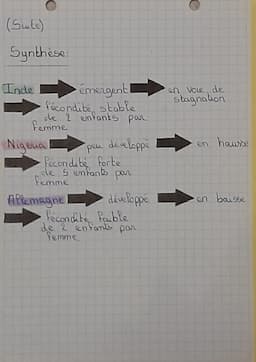 (Suite)
Synthèse:
Inde émergent en voie de
stagnation
fécondité stable
de 2 enfants par
femme
Nigeria peu développé en hausse
fécondité forte
de 5 enfants par
femme
Allemagne développé en baisse
fécondité faible
de 2 enfants par
femme